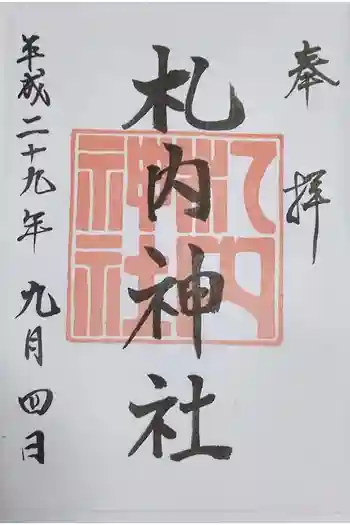 奉拝
札内神社
札内神社
平成二十九年 九月四日